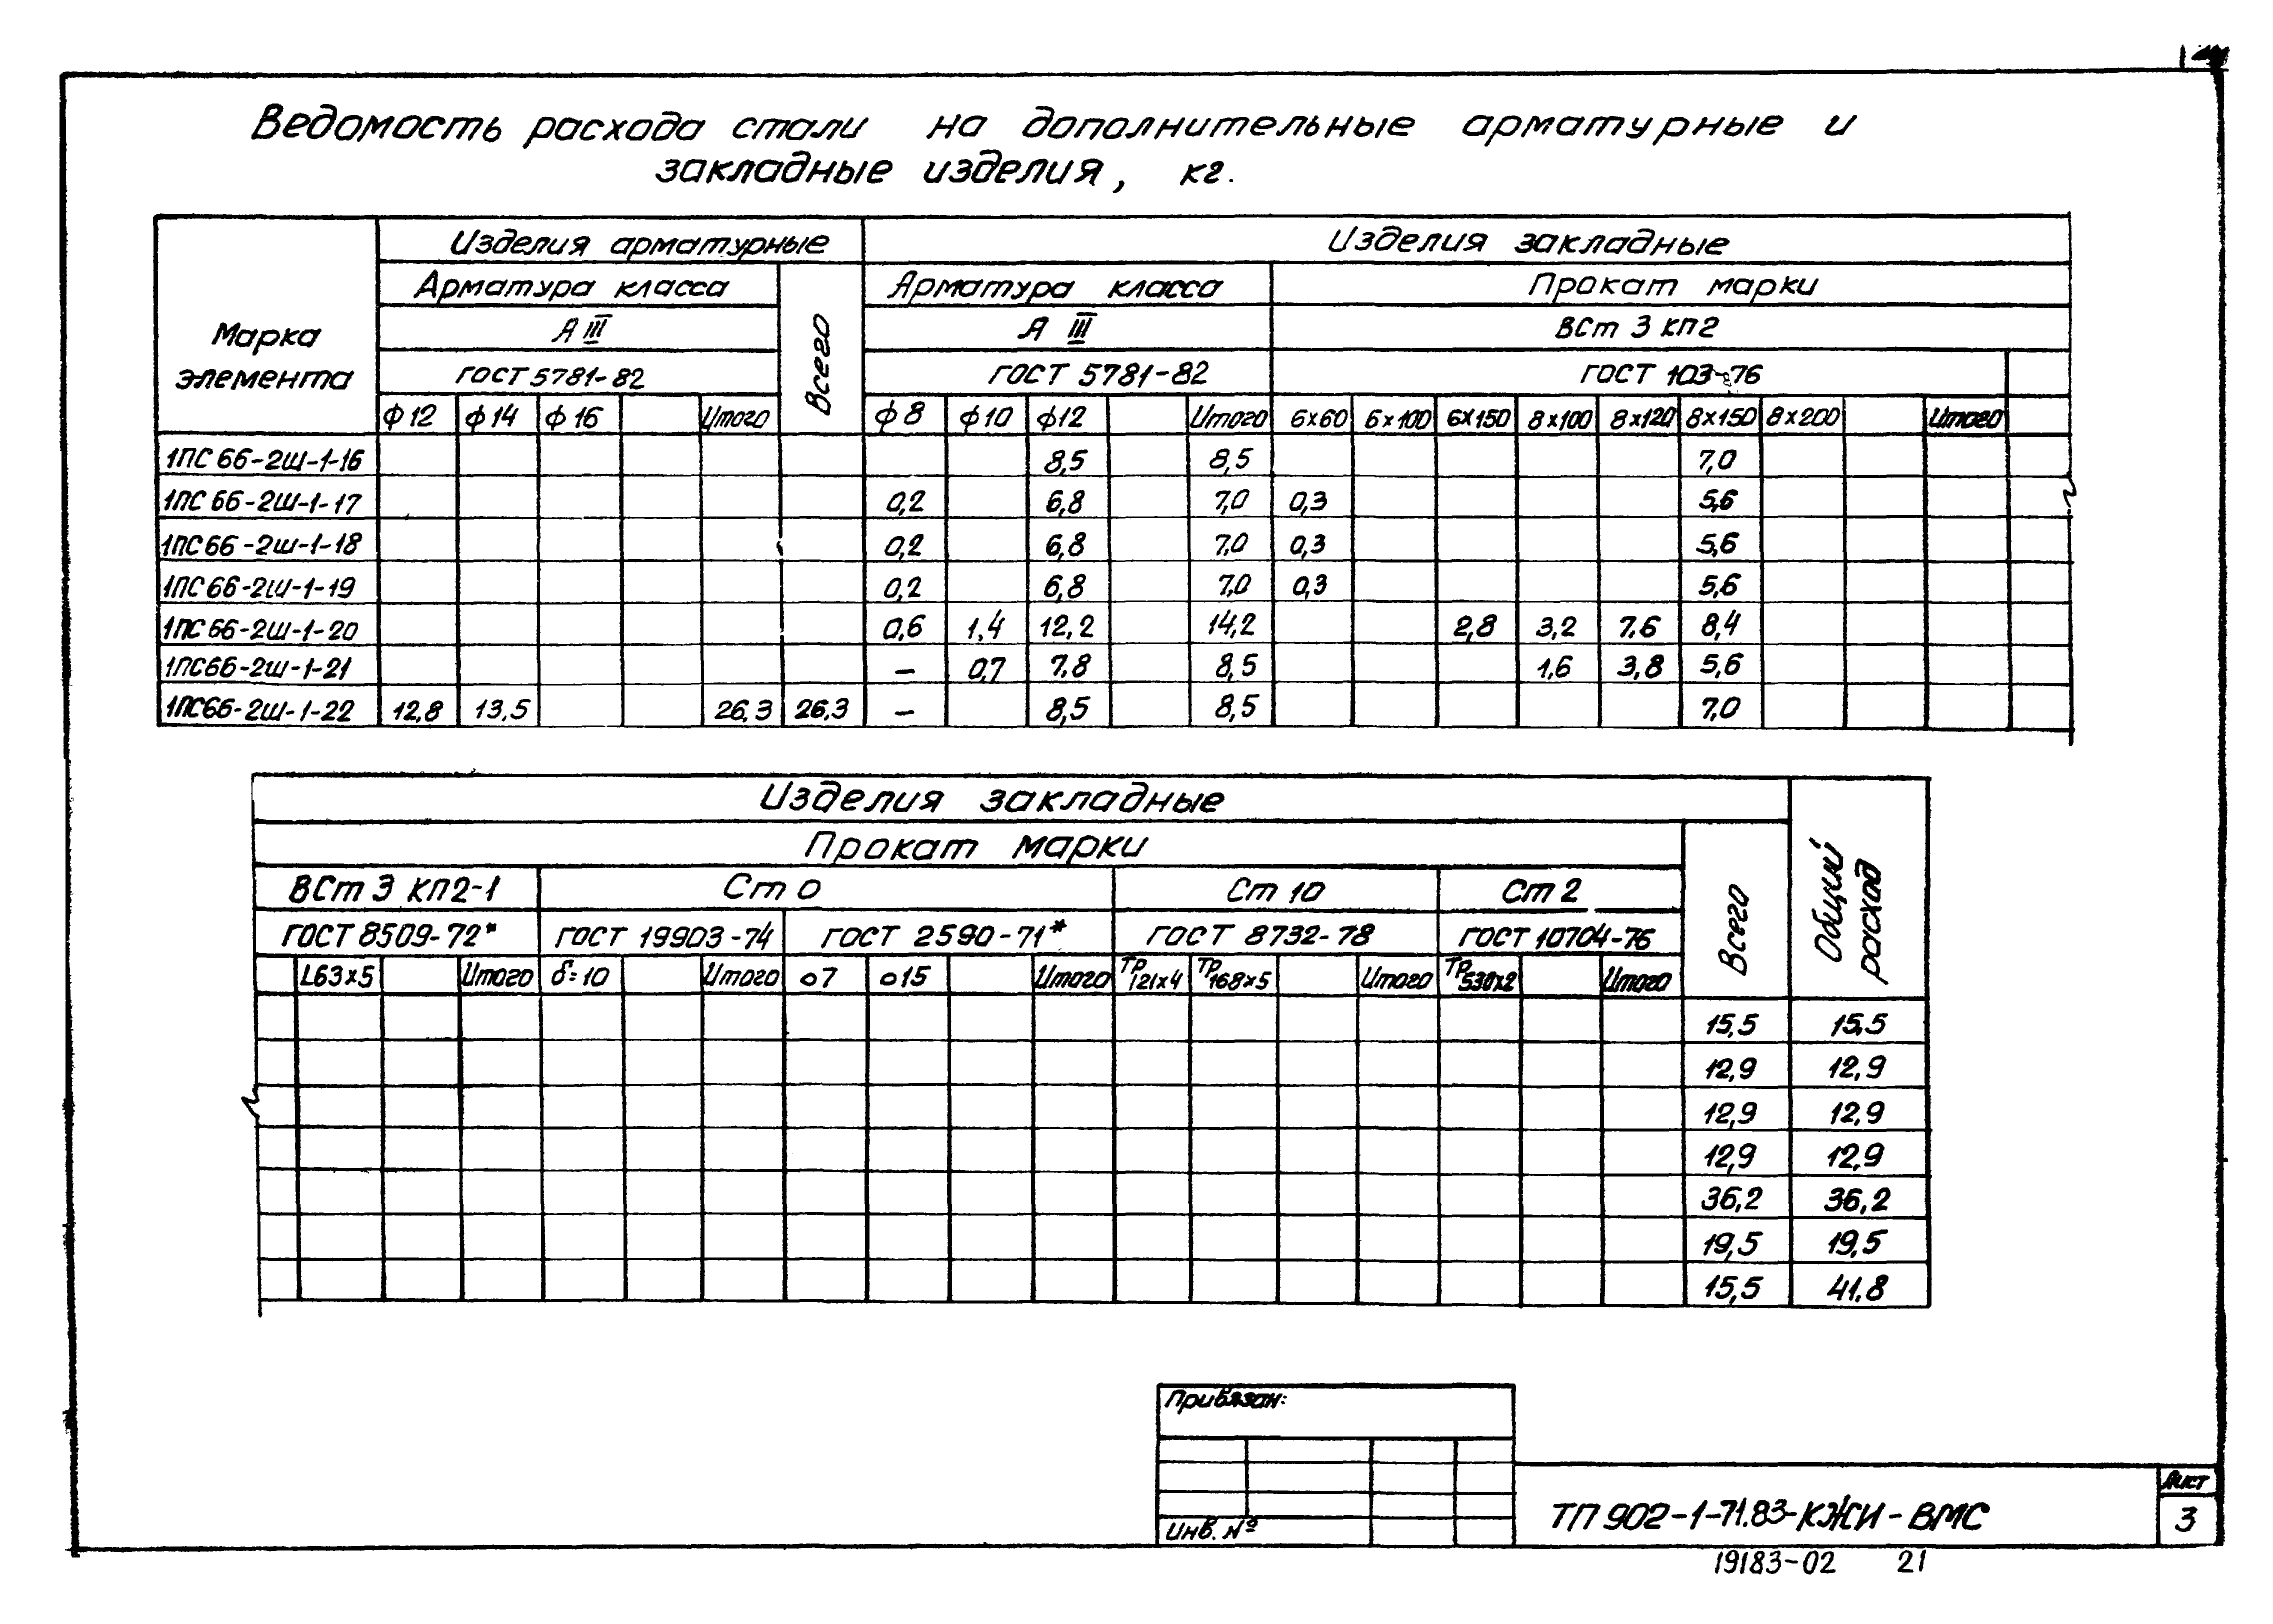 Ведомость расхода стали на дополнительные арматурные и
закладные изделия, кг.
Марка элемента
Изделия арматурные Изделия закладные
Арматура класса Всего Арматура класса Прокат марки
А III А III ВСт 3 кп2
ГОСТ 5781-82 ГОСТ 5781-82 ГОСТ 103-76
ф12 ф14 ф16 Итого ф8 ф10 ф12 Итого 6х60 6х100 6х150 8х100 8х120 8х150 8х200 Итого
1ПС66-2Ш-1-16 8,5 8,5 7,0
1ПС66-2Ш-1-17 0,2 6,8 7,0 0,3 5,6
1ПС66-2Ш-1-18 0,2 6,8 7,0 0,3 5,6
1ПС66-2Ш-1-19 0,2 6,8 7,0 0,3 5,6
1ПС66-2Ш-1-20 0,6 1,4 12,2 14,2 2,8 3,2 7,6 8,4
1ПС66-2Ш-1-21 — 0,7 7,8 8,5 1,6 3,8 5,6
1ПС66-2Ш-1-22 12,8 13,5 26,3 26,3 — 8,5 8,5 7,0
Изделия закладные
Прокат марки Всего Общий расход
ВСт 3 кп2-1 Ст 0 Ст 10 Ст 2
ГОСТ 8509-72* ГОСТ 19903-74 ГОСТ 2590-71* ГОСТ 8732-78 ГОСТ 10704-76
L63х5 Итого δ=10 Итого о7 о15 Итого Тр121х4 Тр168х5 Итого Тр530х2 Итого
15,5 15,5
12,9 12,9
12,9 12,9
12,9 12,9
36,2 36,2
19,5 19,5
15,5 41,8
Привязан:
Инв. №
ТП 902-1-71.83-КЖИ-ВМС
Лист
3
19183-02 21